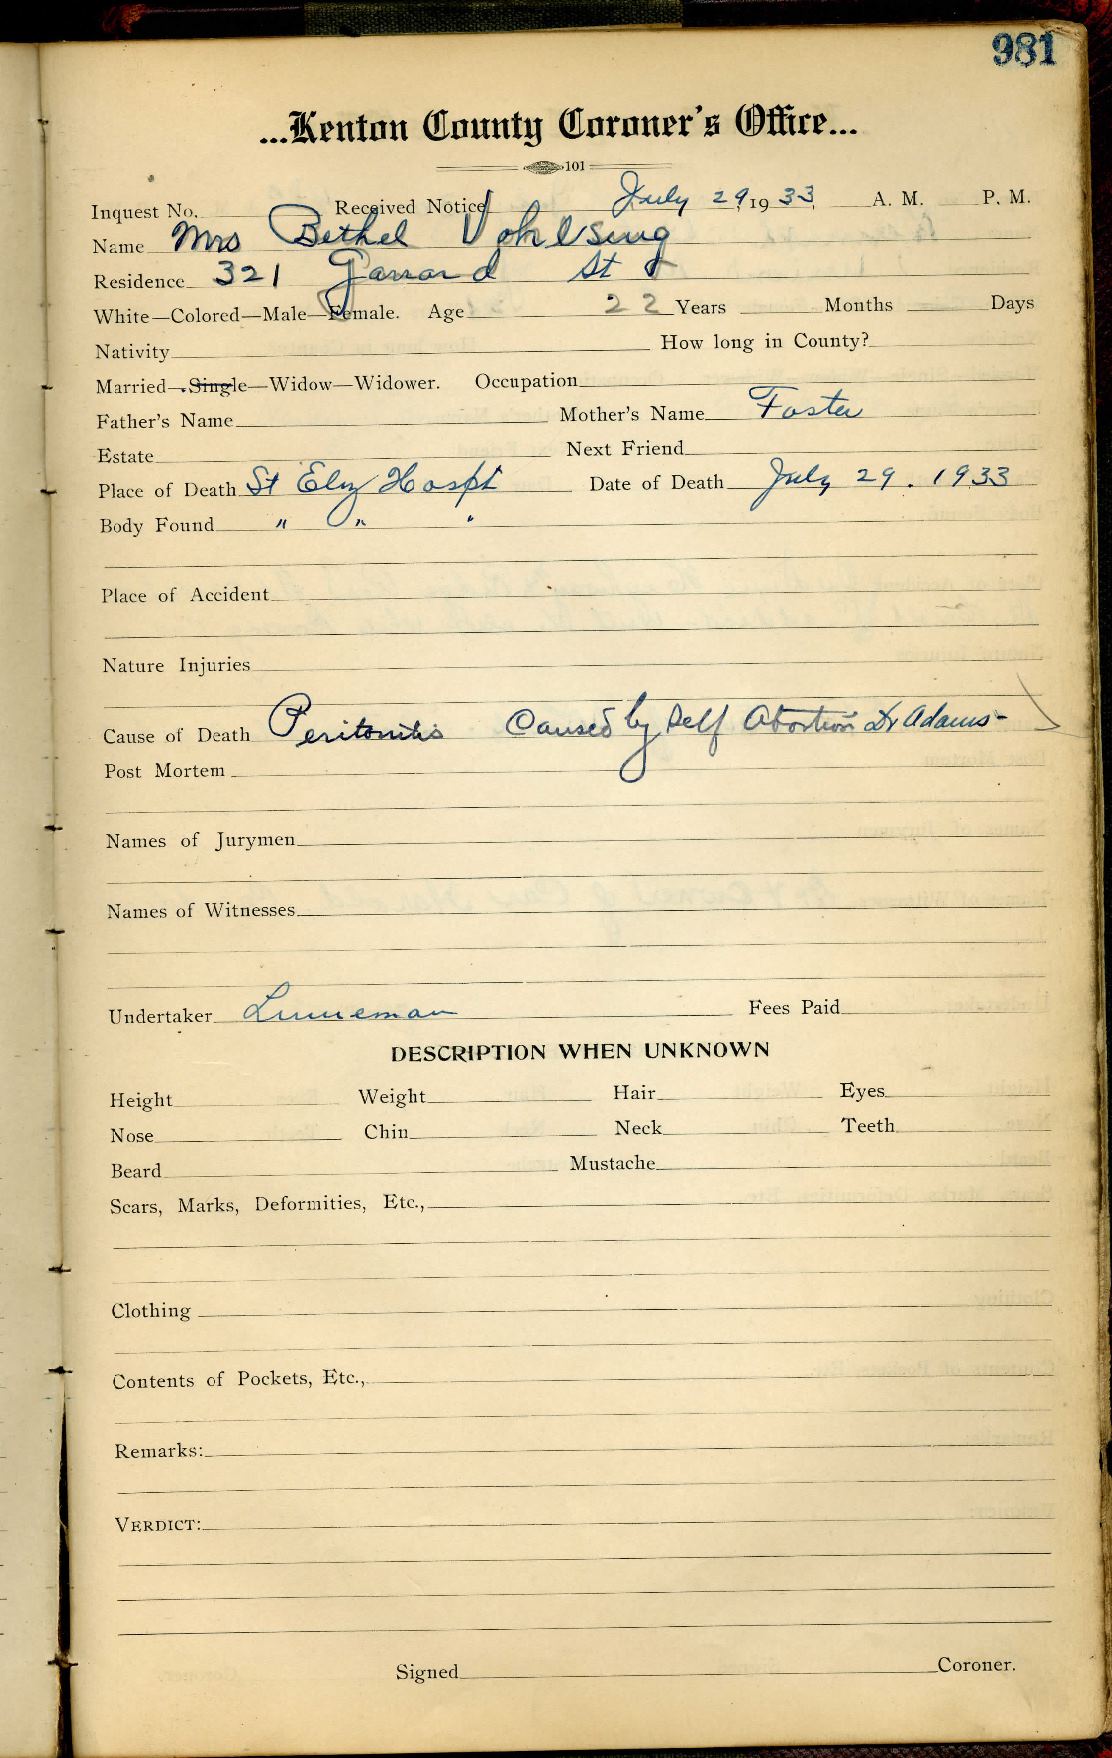 981
...Kenton County Coroner's Office...
101
Inquest No. Received Notice July 29, 1933 A. M. P. M.
Name Mrs Bethel Vohlsing
Residence 321 Garrard St
White—Colored—Male—Female. Age 22 Years Months Days
Nativity How long in County?
Married—Single—Widow—Widower. Occupation
Father's Name Mother's Name Foster
Estate Next Friend
Place of Death St Eliz Hospt Date of Death July 29. 1933
Body Found " " "
Place of Accident
Nature Injuries
Cause of Death Peritonitis Caused by Self Abortion Dr Adams-
Post Mortem
Names of Jurymen
Names of Witnesses
Undertaker Linneman Fees Paid
DESCRIPTION WHEN UNKNOWN
Height Weight Hair Eyes
Nose Chin Neck Teeth
Beard Mustache
Scars, Marks, Deformities, Etc.,
Clothing
Contents of Pockets, Etc.,
Remarks:
VERDICT:
Signed Coroner.